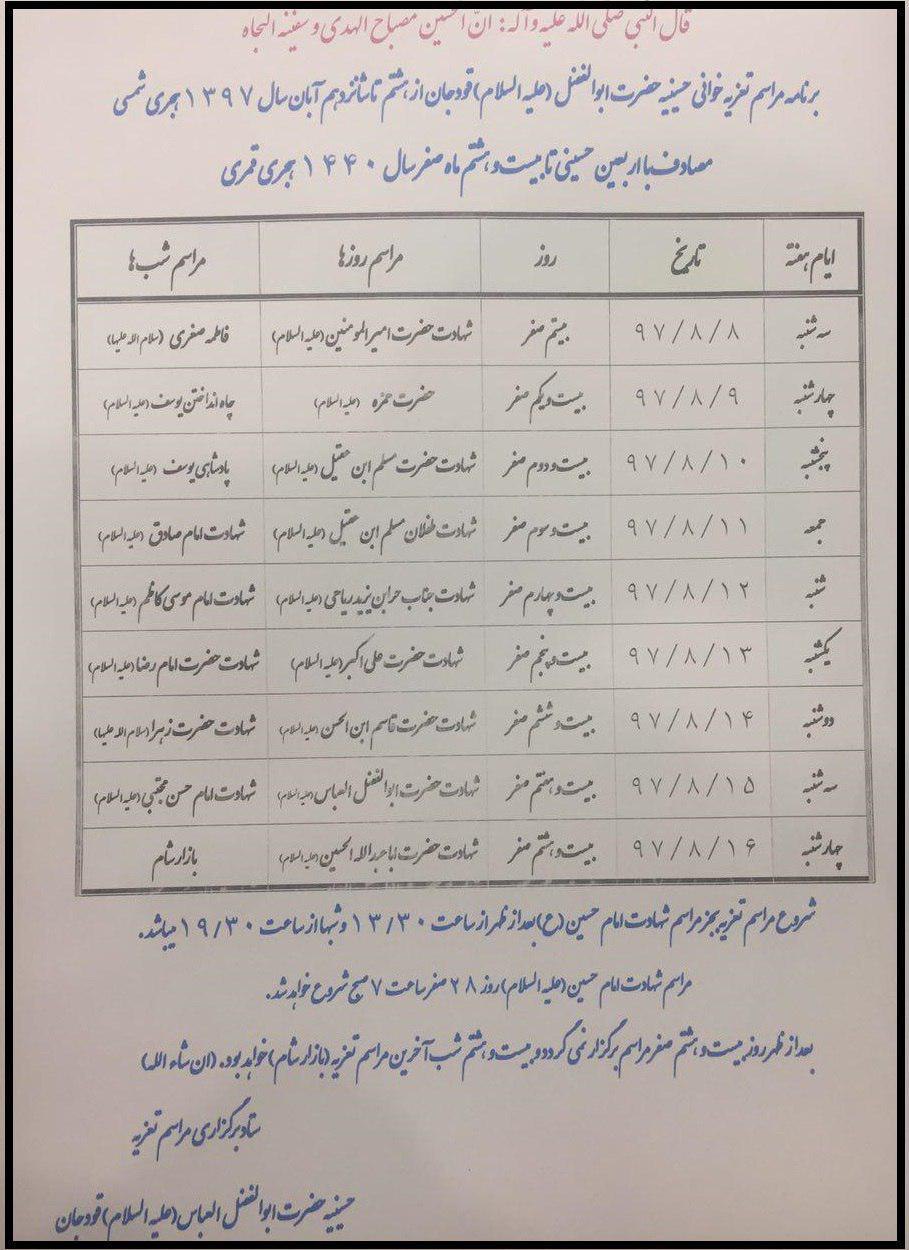 قال النبی صلی الله علیه و آله: ان الحسین مصباح الهدی و سفینه النجاه
برنامه مراسم تعزیه خوانی حسینیه حضرت ابوالفضل (علیه السلام) قودجان از هشتم تا شانزدهم آبان سال ۱۳۹۷ هجری شمسی
مصادف با اربعین حسینی تا بیست و هشتم ماه صفر سال ۱۴۴۰ هجری قمری
ایام هفته تاریخ روز مراسم روزها مراسم شب ها
سه شنبه ۹۷/۸/۸ بیستم صفر شهادت حضرت امیرالمومنین (علیه السلام) فاطمه صغری (سلام الله علیها)
چهارشنبه ۹۷/۸/۹ بیست و یکم صفر حضرت حمزه (علیه السلام) چاه انداختن یوسف (علیه السلام)
پنجشنبه ۹۷/۸/۱۰ بیست و دوم صفر شهادت حضرت مسلم ابن عقیل (علیه السلام) پادشاهی یوسف (علیه السلام)
جمعه ۹۷/۸/۱۱ بیست و سوم صفر شهادت طفلان مسلم ابن عقیل (علیه السلام) شهادت امام صادق (علیه السلام)
شنبه ۹۷/۸/۱۲ بیست و چهارم صفر شهادت جناب حر ابن یزید ریاحی (علیه السلام) شهادت امام موسی کاظم (علیه السلام)
یکشنبه ۹۷/۸/۱۳ بیست و پنجم صفر شهادت حضرت علی اکبر (علیه السلام) شهادت حضرت امام رضا (علیه السلام)
دوشنبه ۹۷/۸/۱۴ بیست و ششم صفر شهادت حضرت قاسم ابن الحسن (علیه السلام) شهادت حضرت زهرا (سلام الله علیها)
سه شنبه ۹۷/۸/۱۵ بیست و هفتم صفر شهادت حضرت ابوالفضل العباس (علیه السلام) شهادت امام حسن مجتبی (علیه السلام)
چهارشنبه ۹۷/۸/۱۶ بیست و هشتم صفر شهادت حضرت اباعبدالله الحسین (علیه السلام) بازار شام
شروع مراسم تعزیه بجز مراسم شهادت امام حسین (ع) بعد از ظهر از ساعت ۱۳/۳۰ و شبها از ساعت ۱۹/۳۰ میباشد.
مراسم شهادت امام حسین (علیه السلام) روز ۲۸ صفر ساعت ۷ صبح شروع خواهد شد.
بعد از ظهر روز بیست و هشتم صفر مراسم برگزار نمی گردد و بیست و هشتم شب آخرین مراسم تعزیه (بازار شام) خواهد بود. (ان شاء الله)
ستاد برگزاری مراسم تعزیه
حسینیه حضرت ابوالفضل العباس (علیه السلام) قودجان